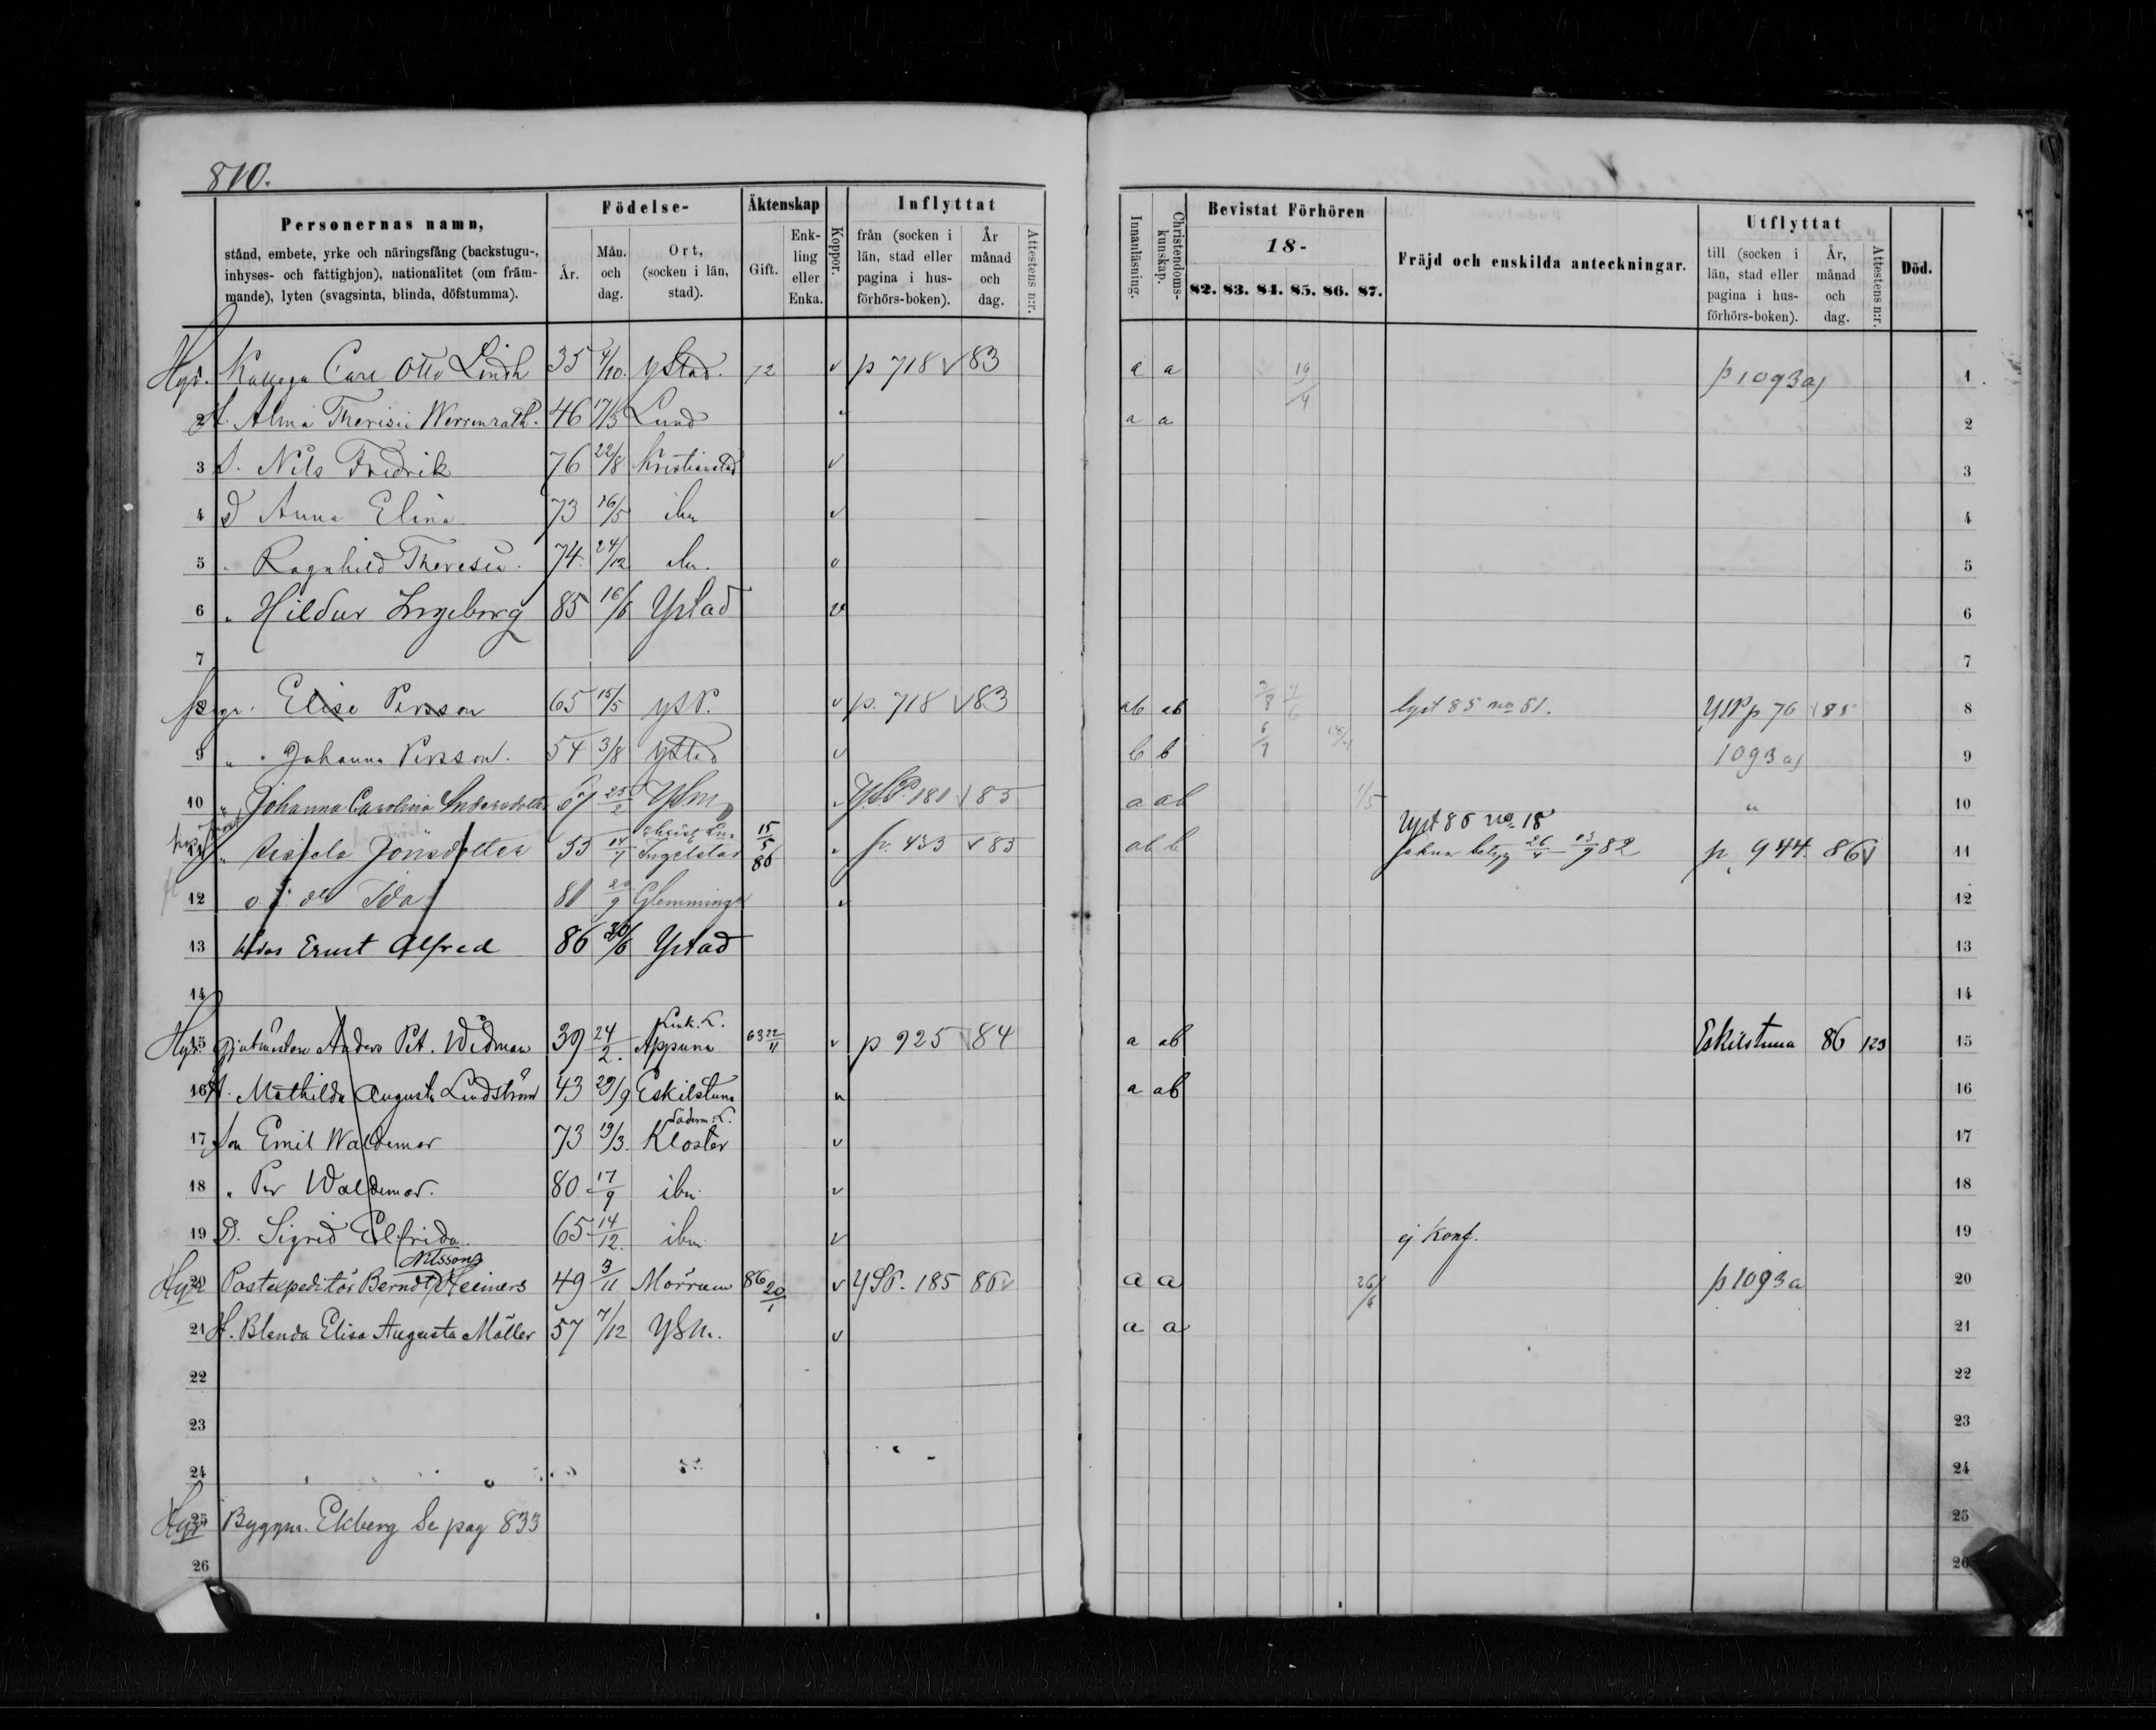 810.
Personernas namn,
stånd, embete, yrke och näringsfång (backstugu-,
inhyses- och fattighjon), nationalitet (om främ-
mande), lyten (svagsinta, blinda, döfstumma).
Födelse-
År.
Mån. och dag.
Ort, (socken i län, stad).
Äktenskap
Gift.
Enk- ling eller Enka.
Koppor.
Inflyttat
från (socken i län, stad eller pagina i hus- förhörs-boken).
År månad och dag.
Attestens n:r.
Innanläsning.
Christendoms- kunskap.
Bevistat Förhören
18-
82. 83. 84. 85. 86. 87.
Fräjd och enskilda anteckningar.
Utflyttat
till (socken i län, stad eller pagina i hus- förhörs-boken).
År, månad och dag.
Attestens n:r.
Död.
Hyr. Carl Otto Lindh 35 4/10. Ystad. 72 v p 718 v 83 a a 19/4 p 1093 a) 1
2 H. Alma Werrenrath. 46 17/3 Lund a a 2
3 S. Nils Fredrik 76 22/8 Kristianstad v 3
4 D Anna Elina 73 16/5 ibm v 4
5 " Ragnhild Theresia. 74. 24/12 ibm. v 5
6 " Hildur Ingeborg 85 16/6 Ystad v 6
7 7
Elise Persson 65 15/5 YSP. v p. 718 v 83 ab ab 3/8 7/6 lyst 85 no 51. YSP p 76 v 85 8
9 " Johanna Persson. 54 3/8 Ystad v b b 6/7 1093 a) 9
10 " Johanna Carolina Andersdotter 67 25/2 YSm YSP. 181 v 85 a ab 1/5 " 10
Lyst 86 no 18
" Jönsdotter 53 14/7 Ingelstad 15/5 86 p. 433 v 85 ab b saknar betyg 26/4 - 13/9 82 p. 944. 86 v 11
12 o. ä. dr Ida 81 20/9 Glemminge 12
13 Ernst Alfred 86 Ystad 13
14 14
Hyr. Gjutmästare Anders Pet. Widman 39 24/2. Appuna 63 22/11 v p 925 v 84 a ab Eskilstuna 86 123 15
16 H. Mathilda Augusta Lindström 43 29/9 Eskilstuna a ab 16
Söderm. L.
17 Son Emil Waldemar 73 19/3. Kloster v 17
18 " Per Waldemar. 80 17/9 ibm v 18
19 D. Sigrid Elfrida. 65 14/12. ibm v ej konf. 19
Nilsson
Hyr 20 Postexpeditör Berndt Heimers 49 3/11 Mörrum 86 20/1 v YSP. 185 86 v a a 26/4 p 1093 a 20
21 H. Blenda Elisa Augusta Möller 57 7/12 YSm. v a a 21
22 22
23 23
24 24
Hyr 25 Byggm. Ekberg Se pag 833 25
26 26